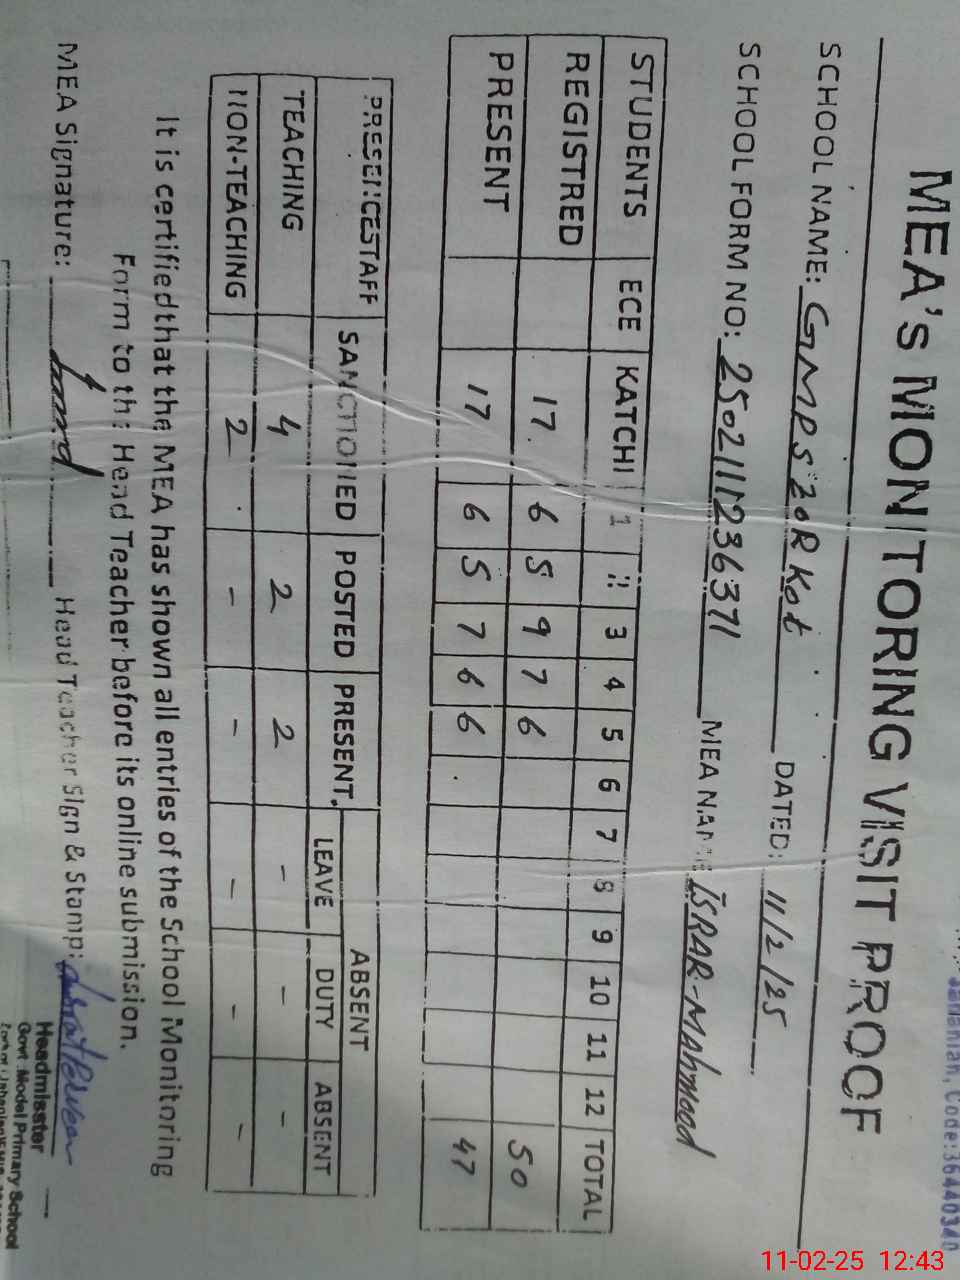 Jahanian, Code:36440340
MEA'S MONITORING VISIT PROOF
SCHOOL NAME: GMPS 20R Kot DATED: 11/2/25
SCHOOL FORM NO: 2502111236371 MEA NAME ISRAR-MAHMOOD
STUDENTS ECE KATCHI 1 2 3 4 5 6 7 8 9 10 11 12 TOTAL
REGISTRED 17 6 5 9 7 6 50
PRESENT 17 6 5 7 6 6 47
PRESENCESTAFF SANCTIONED POSTED PRESENT ABSENT
LEAVE DUTY ABSENT
TEACHING 4 2 2 - - -
NON-TEACHING 2 - - - - -
It is certified that the MEA has shown all entries of the School Monitoring
Form to the Head Teacher before its online submission.
MEA Signature: Head Teacher Sign & Stamp:
Headmisster
Govt: Model Primary School
11-02-25 12:43